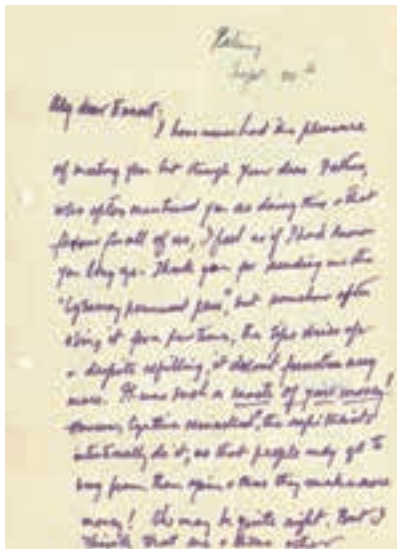 Sept. 20th
My dear Ernest,
I have never had the pleasure
of meeting you but through your dear Father,
who often mentioned you as doing this & that
for all of us, I feel as if I had known
you long ago. Thank you for sending me the
pen", but somehow after
using it for a few times, the tip dries up
& despite refilling, it doesn't function any
more. It was such a waste of your money!
the capitalists
intentionally do it, so that people may go to
buy from them again & thus they make more
money! She may be quite right. But I
think that one other